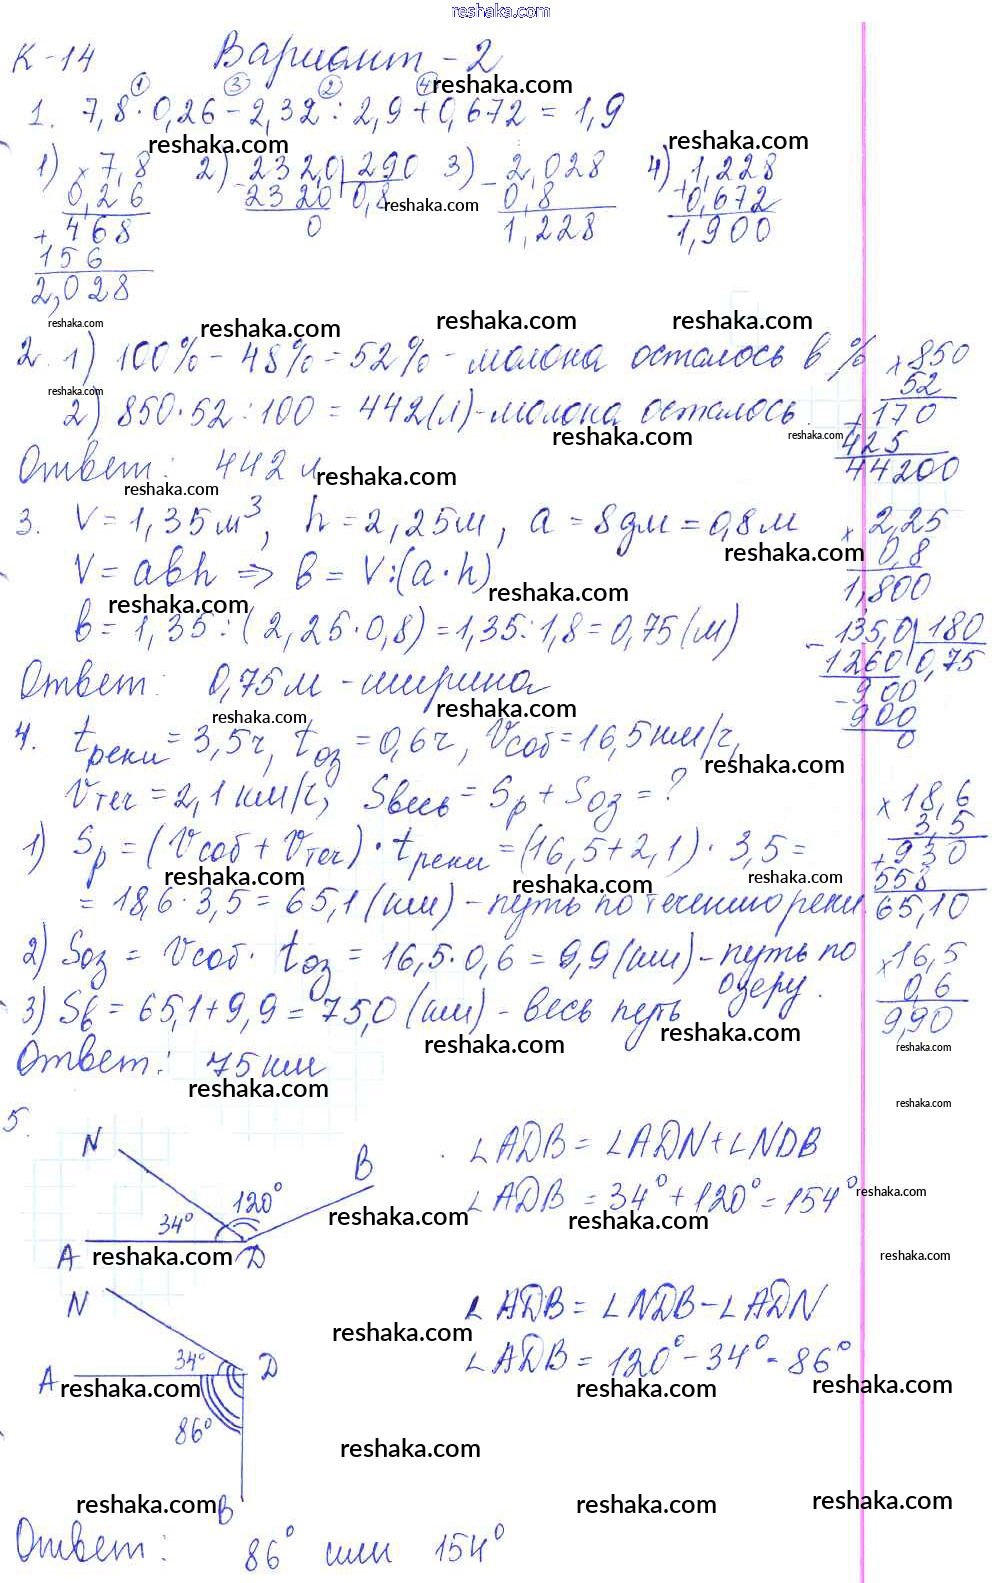 reshaka.com
К-14 Вариант-2
1. 7,8 · 0,26 - 2,32 : 2,9 + 0,672 = 1,9
① ③ ② ④
1) × 7,8
0,26
+ 468
156
2,028
2) - 232,0 | 290
2320 | 0,8
0
3) - 2,028
0,8
1,228
4) + 1,228
0,672
1,900
2. 1) 100% - 48% = 52% - молока осталось в %
2) 850·52 : 100 = 442(л) - молока осталось.
× 850
52
+ 170
425
44200
Ответ: 442 л
3. V = 1,35 м³, h = 2,25м, a = 8дм = 0,8м
V = abh ⇒ b = V:(a·h)
b = 1,35 : (2,25·0,8) = 1,35 : 1,8 = 0,75 (м)
× 2,25
0,8
1,800
- 135,0 | 180
1260 | 0,75
- 900
900
0
Ответ: 0,75м - ширина
4. tреки = 3,5ч, tоз = 0,6ч, Vсоб = 16,5 км/ч,
Vтеч = 2,1 км/ч, Sвесь = Sр + Sоз = ?
1) Sр = (Vсоб + Vтеч) · tреки = (16,5 + 2,1) · 3,5 =
= 18,6 · 3,5 = 65,1 (км) - путь по течению реки.
× 18,6
3,5
+ 930
558
65,10
2) Sоз = Vсоб · tоз = 16,5 · 0,6 = 9,9 (км) - путь по
озеру.
× 16,5
0,6
9,90
3) Sв = 65,1 + 9,9 = 75,0 (км) - весь путь
Ответ: 75 км
5.
N
B
120°
34°
A D
∠ADB = ∠ADN + ∠NDB
∠ADB = 34° + 120° = 154°
N
34°
A D
86°
B
∠ADB = ∠NDB - ∠ADN
∠ADB = 120° - 34° = 86°
Ответ: 86° или 154°
reshaka.com